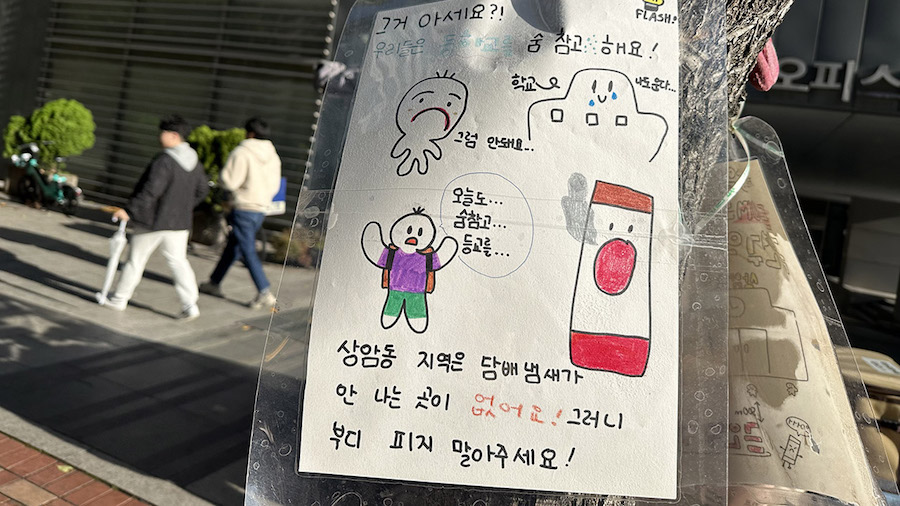 FLASH!
그거 아세요?!
우리들은 등하교를 숨 참고 해요!
학교
나도 운다...
그럼 안돼요..
오늘도...
숨참고...
등교를...
상암동 지역은 담배냄새가
안 나는 곳이 없어요! 그러니
부디 피지 말아주세요!
오피스